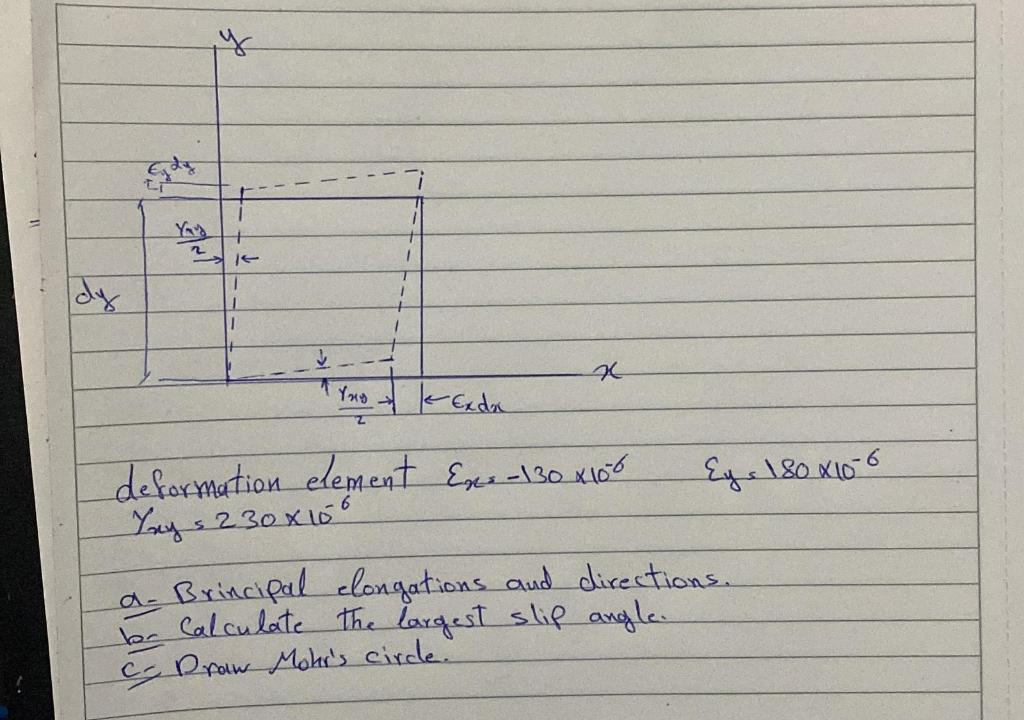 y
εy dy
γxy
2
dy
x
γxy
2
εx dx
deformation element εx = -130 x10^-6 εy = 180 x10^-6
γxy = 230 x 10^-6
a- Brincipal elongations and directions.
b- Calculate the largest slip angle.
c- Draw Mohr's circle.